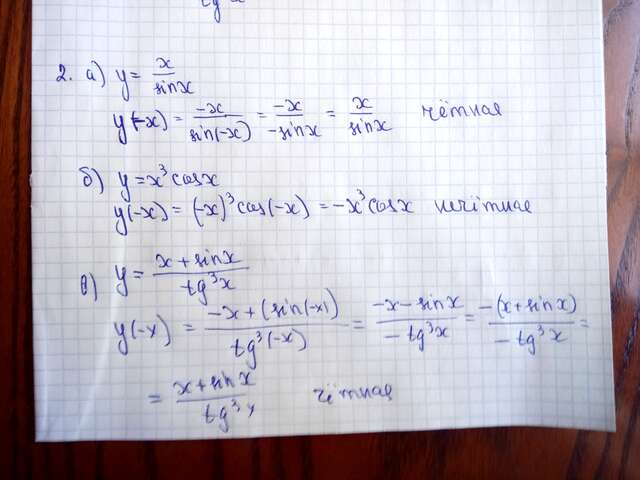 2. а) y = x / sin x
y(-x) = -x / sin(-x) = -x / -sin x = x / sin x чётная
б) y = x³ cos x
y(-x) = (-x)³ cos(-x) = -x³ cos x нечётная
в) y = x + sin x / tg³x
y(-x) = -x + (sin(-x)) / tg³(-x) = -x - sin x / - tg³x = -(x + sin x) / - tg³x =
= x + sin x / tg³x чётная